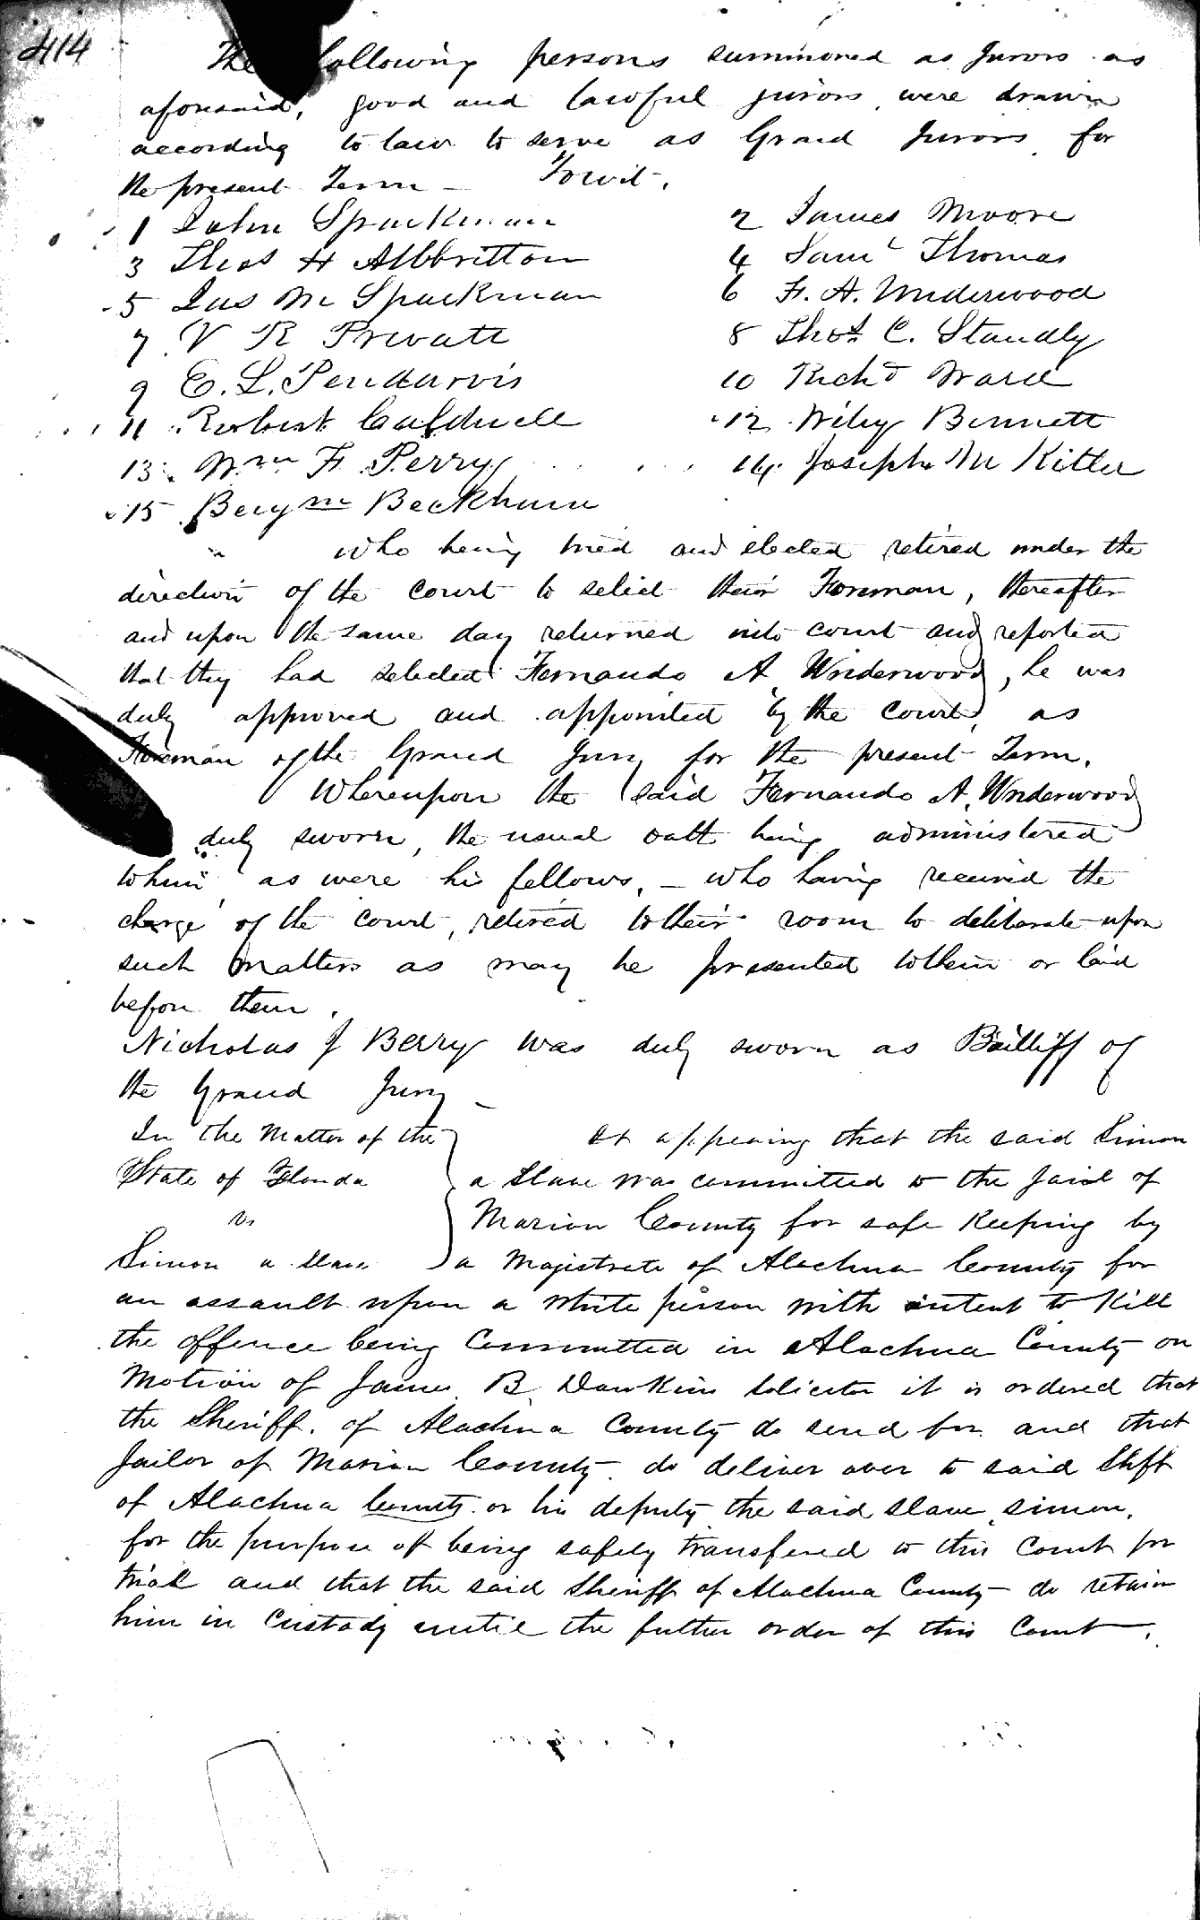 414
The following persons summoned as Jurors as
aforesaid, good and lawful jurors, were drawn
according to law to serve as Grand Jurors for
the present Term — Towit.
1 John Sparkman 2 James Moore
3 Thos H Albbritton 4 Saml Thomas
5 Jas M Sparkman 6 F. A. Underwood
7 V R Prevatt 8 Thos C. Standly
9 E. L. Pendarvis 10 Richd Ward
11 Robert Caldwell 12 Wiley Bennett
13 Wm F Perry 14 Joseph M
15 Benjm Beckham
who being tried and elected retired under the
direction of the court to select their Foreman, thereafter
and upon the same day returned into court and reported
that they had selected Fernando A Underwood, he was
duly approved and appointed by the court, as
Foreman of the Grand Jury for the present Term.
Whereupon the said Fernando A. Underwood
duly sworn, the usual oath being administered
to him as were his fellows, — who having received the
charge of the court, retired to their room to deliberate upon
such matters as may be presented to them or laid
before them.
Nicholas J Berry was duly sworn as Bailiff of
the Grand Jury —
In the Matter of the
State of Florida
vs
Simon a slave
It appearing that the said Simon
a Slave was committed to the Jail of
Marion County for safe keeping by
a Magistrate of Alachua County for
an assault upon a white person with intent to kill
the offence being Committed in Alachua County on
Motion of James B. Dawkins Solicitor it is ordered that
the Sheriff. of Alachua County do send for and that
Jailor of Marion County do deliver over to said Shff
of Alachua County or his deputy the said slave Simon,
for the purpose of being safely transfered to this Court for
trial and that the said Sheriff of Alachua County do retain
him in Custody until the futher order of this Court.